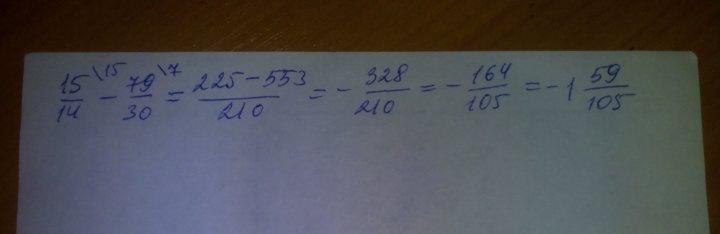 15/14 \15 − 79/30 \7 = 225−553/210 = − 328/210 = − 164/105 = −1 59/105